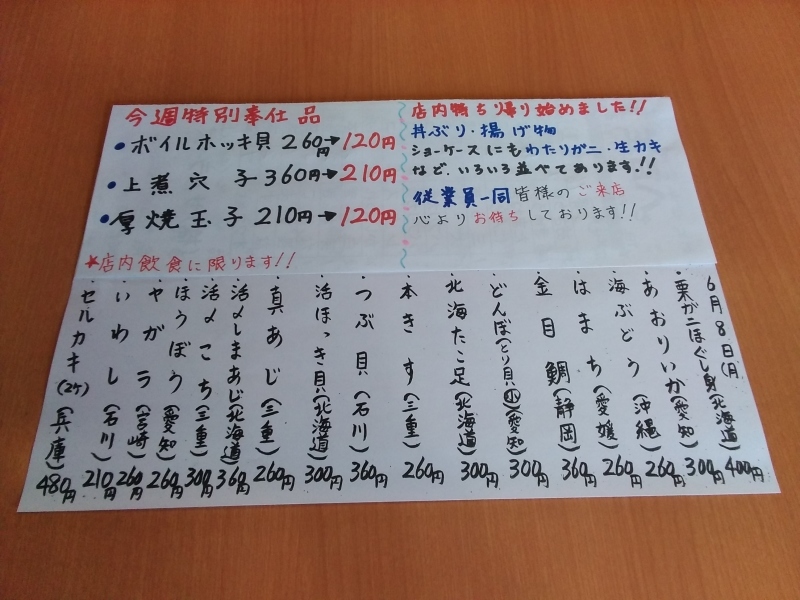 今週特別奉仕品
●ボイルホッキ貝 260円→120円
●上煮穴子 360円→210円
●厚焼玉子 210円→120円
★店内飲食に限ります!!
店内持ち帰り始めました!!
丼ぶり・揚げ物
ショーケースにもわたりガニ・生カキ
など、いろいろ並べてあります!!
従業員一同皆様のご来店
心よりお待ちしております!!
6月8日(月)
・栗ガニほぐし身(北海道) 400円
・あおりいか(愛知) 300円
・海ぶどう(沖縄) 260円
・はまち(愛媛) 260円
・金目鯛(静岡) 360円
・どんぼ(とり貝小)(愛知) 300円
・北海たこ足(北海道) 300円
・本きす(三重) 260円
・つぶ貝(石川) 360円
・活ほっき貝(北海道) 300円
・真あじ(三重) 260円
・活〆しまあじ(北海道) 360円
・活〆こち(三重) 300円
・ほうぼう(愛知) 260円
・ヤガラ(宮崎) 260円
・いわし(石川) 210円
・セルカキ(2ケ)(兵庫) 480円